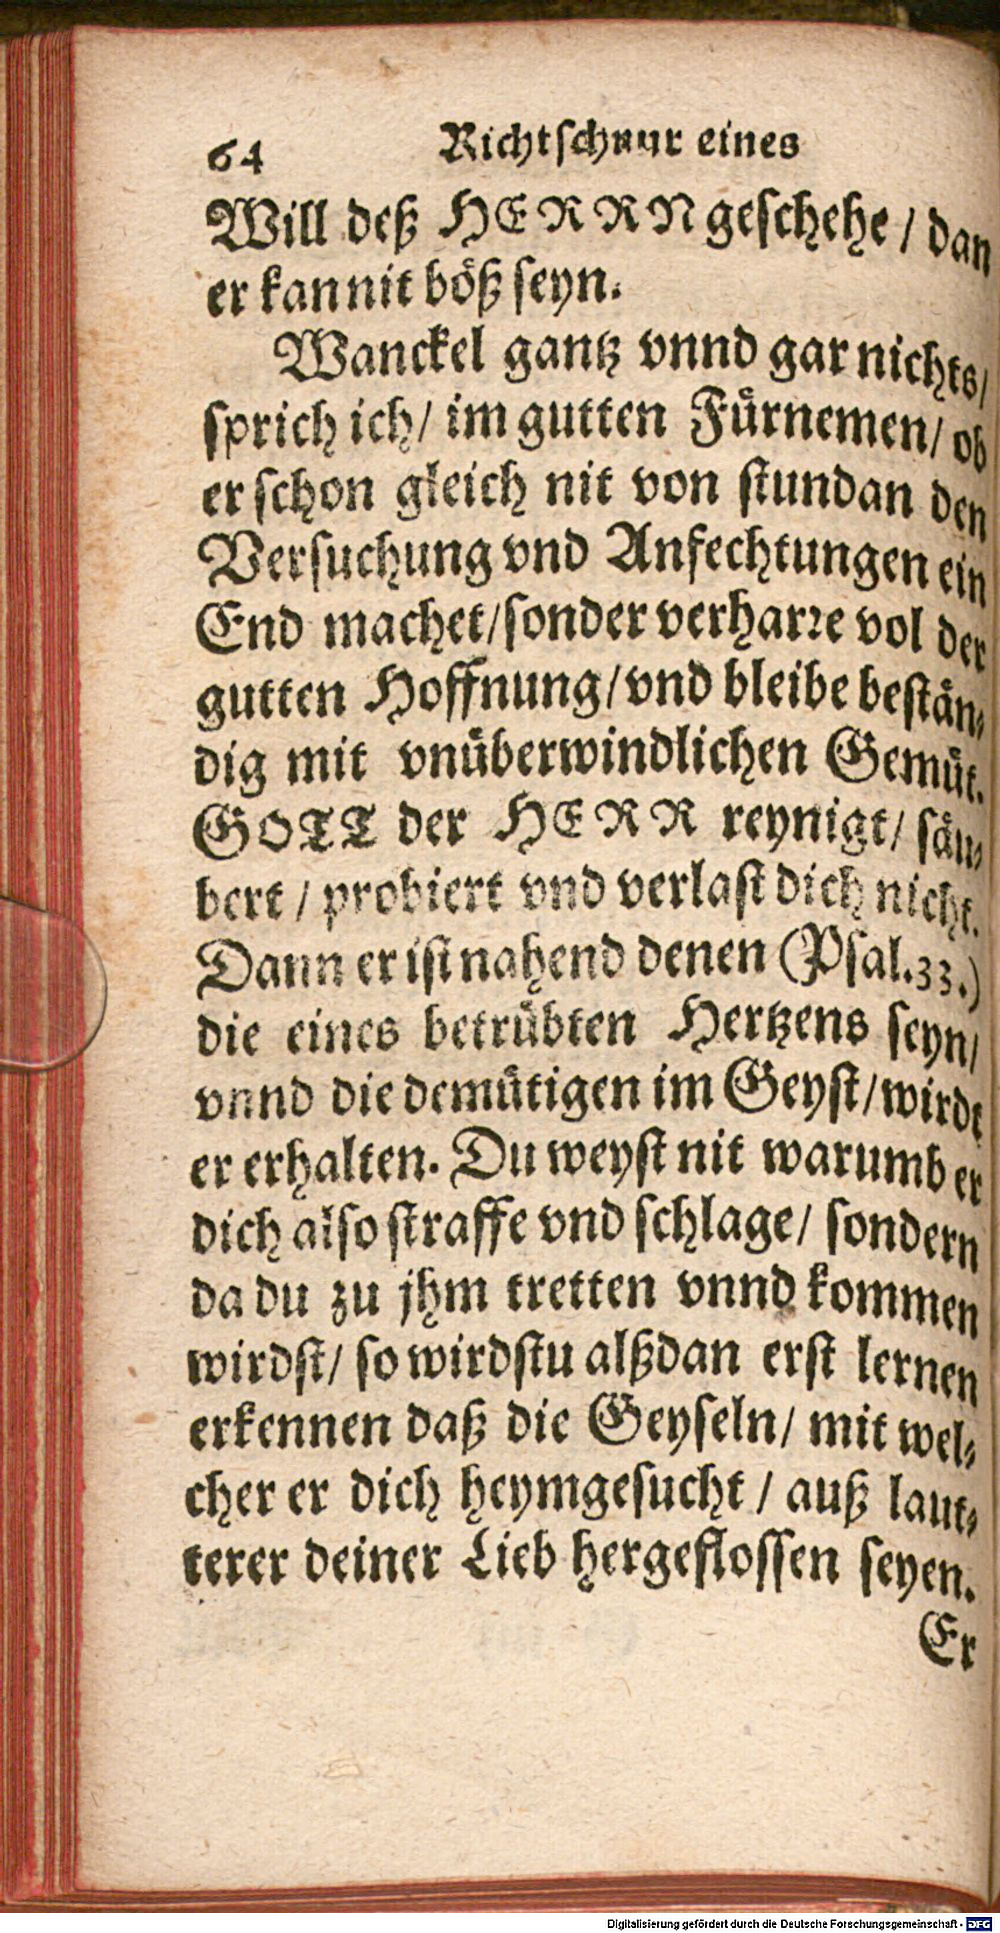 64 Richtschnur eines
Will deß HERRN geschehe / dan
er kan nit böß seyn.
Wanckel gantz vnnd gar nichts /
sprich ich / im gutten Fürnemen / ob
er schon gleich nit von stundan den
Versuchung vnd Anfechtungen ein
End machet / sonder verharre vol der
gutten Hoffnung / vnd bleibe bestän-
dig mit vnüberwindlichen Gemüt.
GOTT der HERR reynigt / säu-
bert / probiert vnd verlast dich nicht.
Dann er ist nahend denen (Psal. 33.)
die eines betrübten Hertzens seyn /
vnnd die demütigen im Geyst / wirdt
er erhalten. Du weyst nit warumb er
dich also straffe vnd schlage / sondern
da du zu jhm tretten vnnd kommen
wirdst / so wirdstu alßdan erst lernen
erkennen daß die Geyseln / mit wel-
cher er dich heymgesucht / auß laut-
terer deiner Lieb hergeflossen seyen.
Er
Digitalisierung gefördert durch die Deutsche Forschungsgemeinschaft - DFG